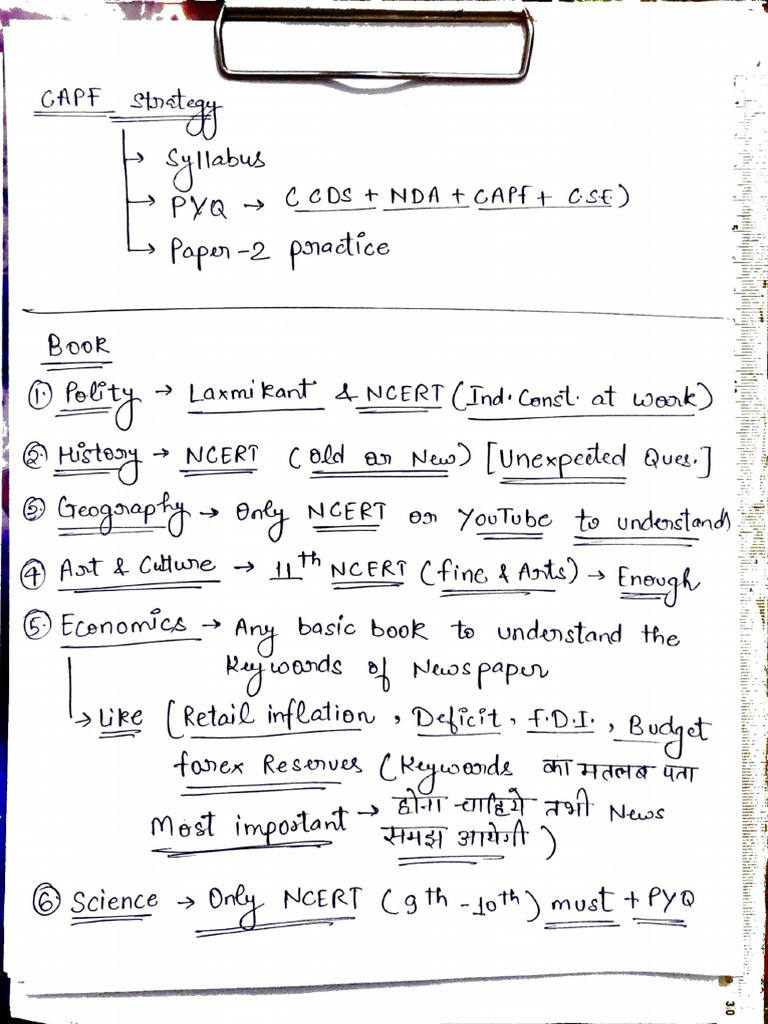 CAPF Strategy
→ Syllabus
→ PYQ → (CDS + NDA + CAPF + CSE)
→ Paper-2 practice
Book
① Polity → Laxmikant & NCERT (Ind. Const. at work)
② History → NCERT (Old or New) [Unexpected Ques.]
③ Geography → Only NCERT or YouTube to understand
④ Art & Culture → 11th NCERT (fine & Arts) → Enough
⑤ Economics → Any basic book to understand the
Keywords of Newspaper
→ Like (Retail inflation, Deficit, F.D.I., Budget
forex Reserves (Keywords का मतलब पता
Most important → होना चाहिये तभी News
समझ आयेगी)
⑥ Science → Only NCERT (9th - 10th) must + PYQ